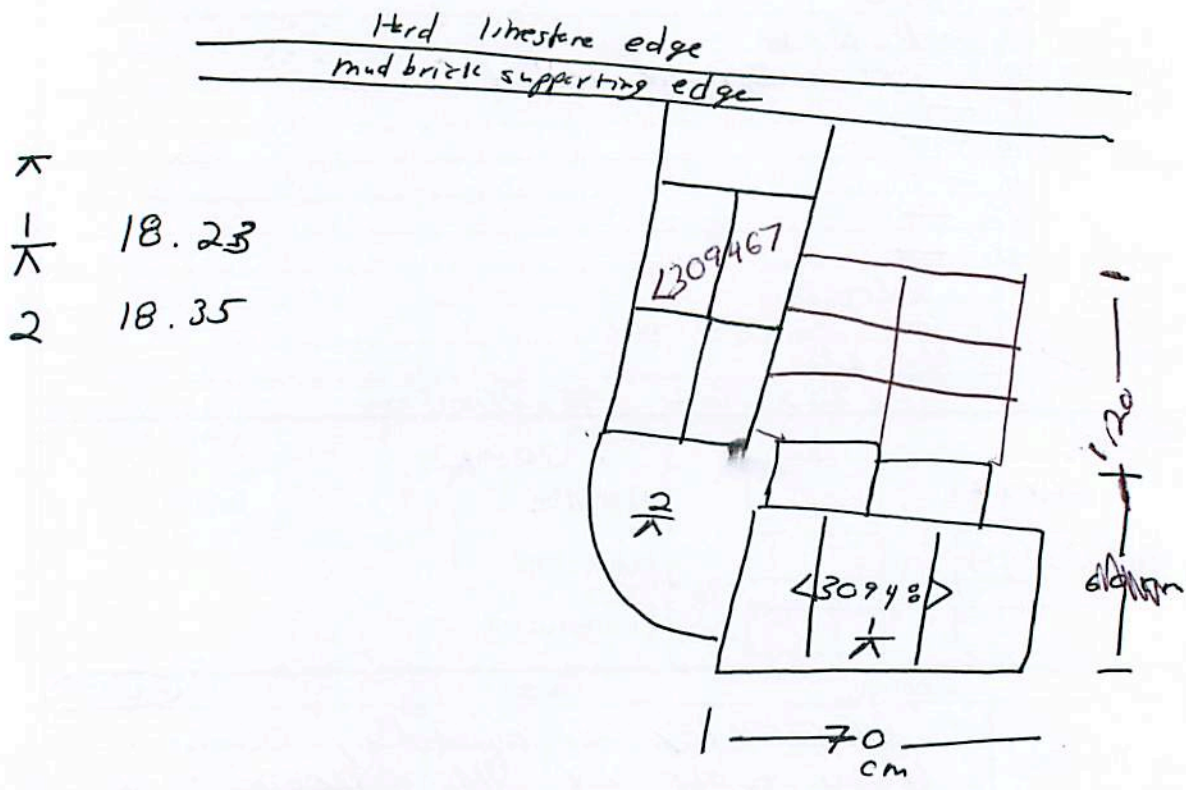 Hard limestone edge
mud brick supporting edge
1 18.23
2 18.35
<309467
2
<3094
1
1.20
70
cm